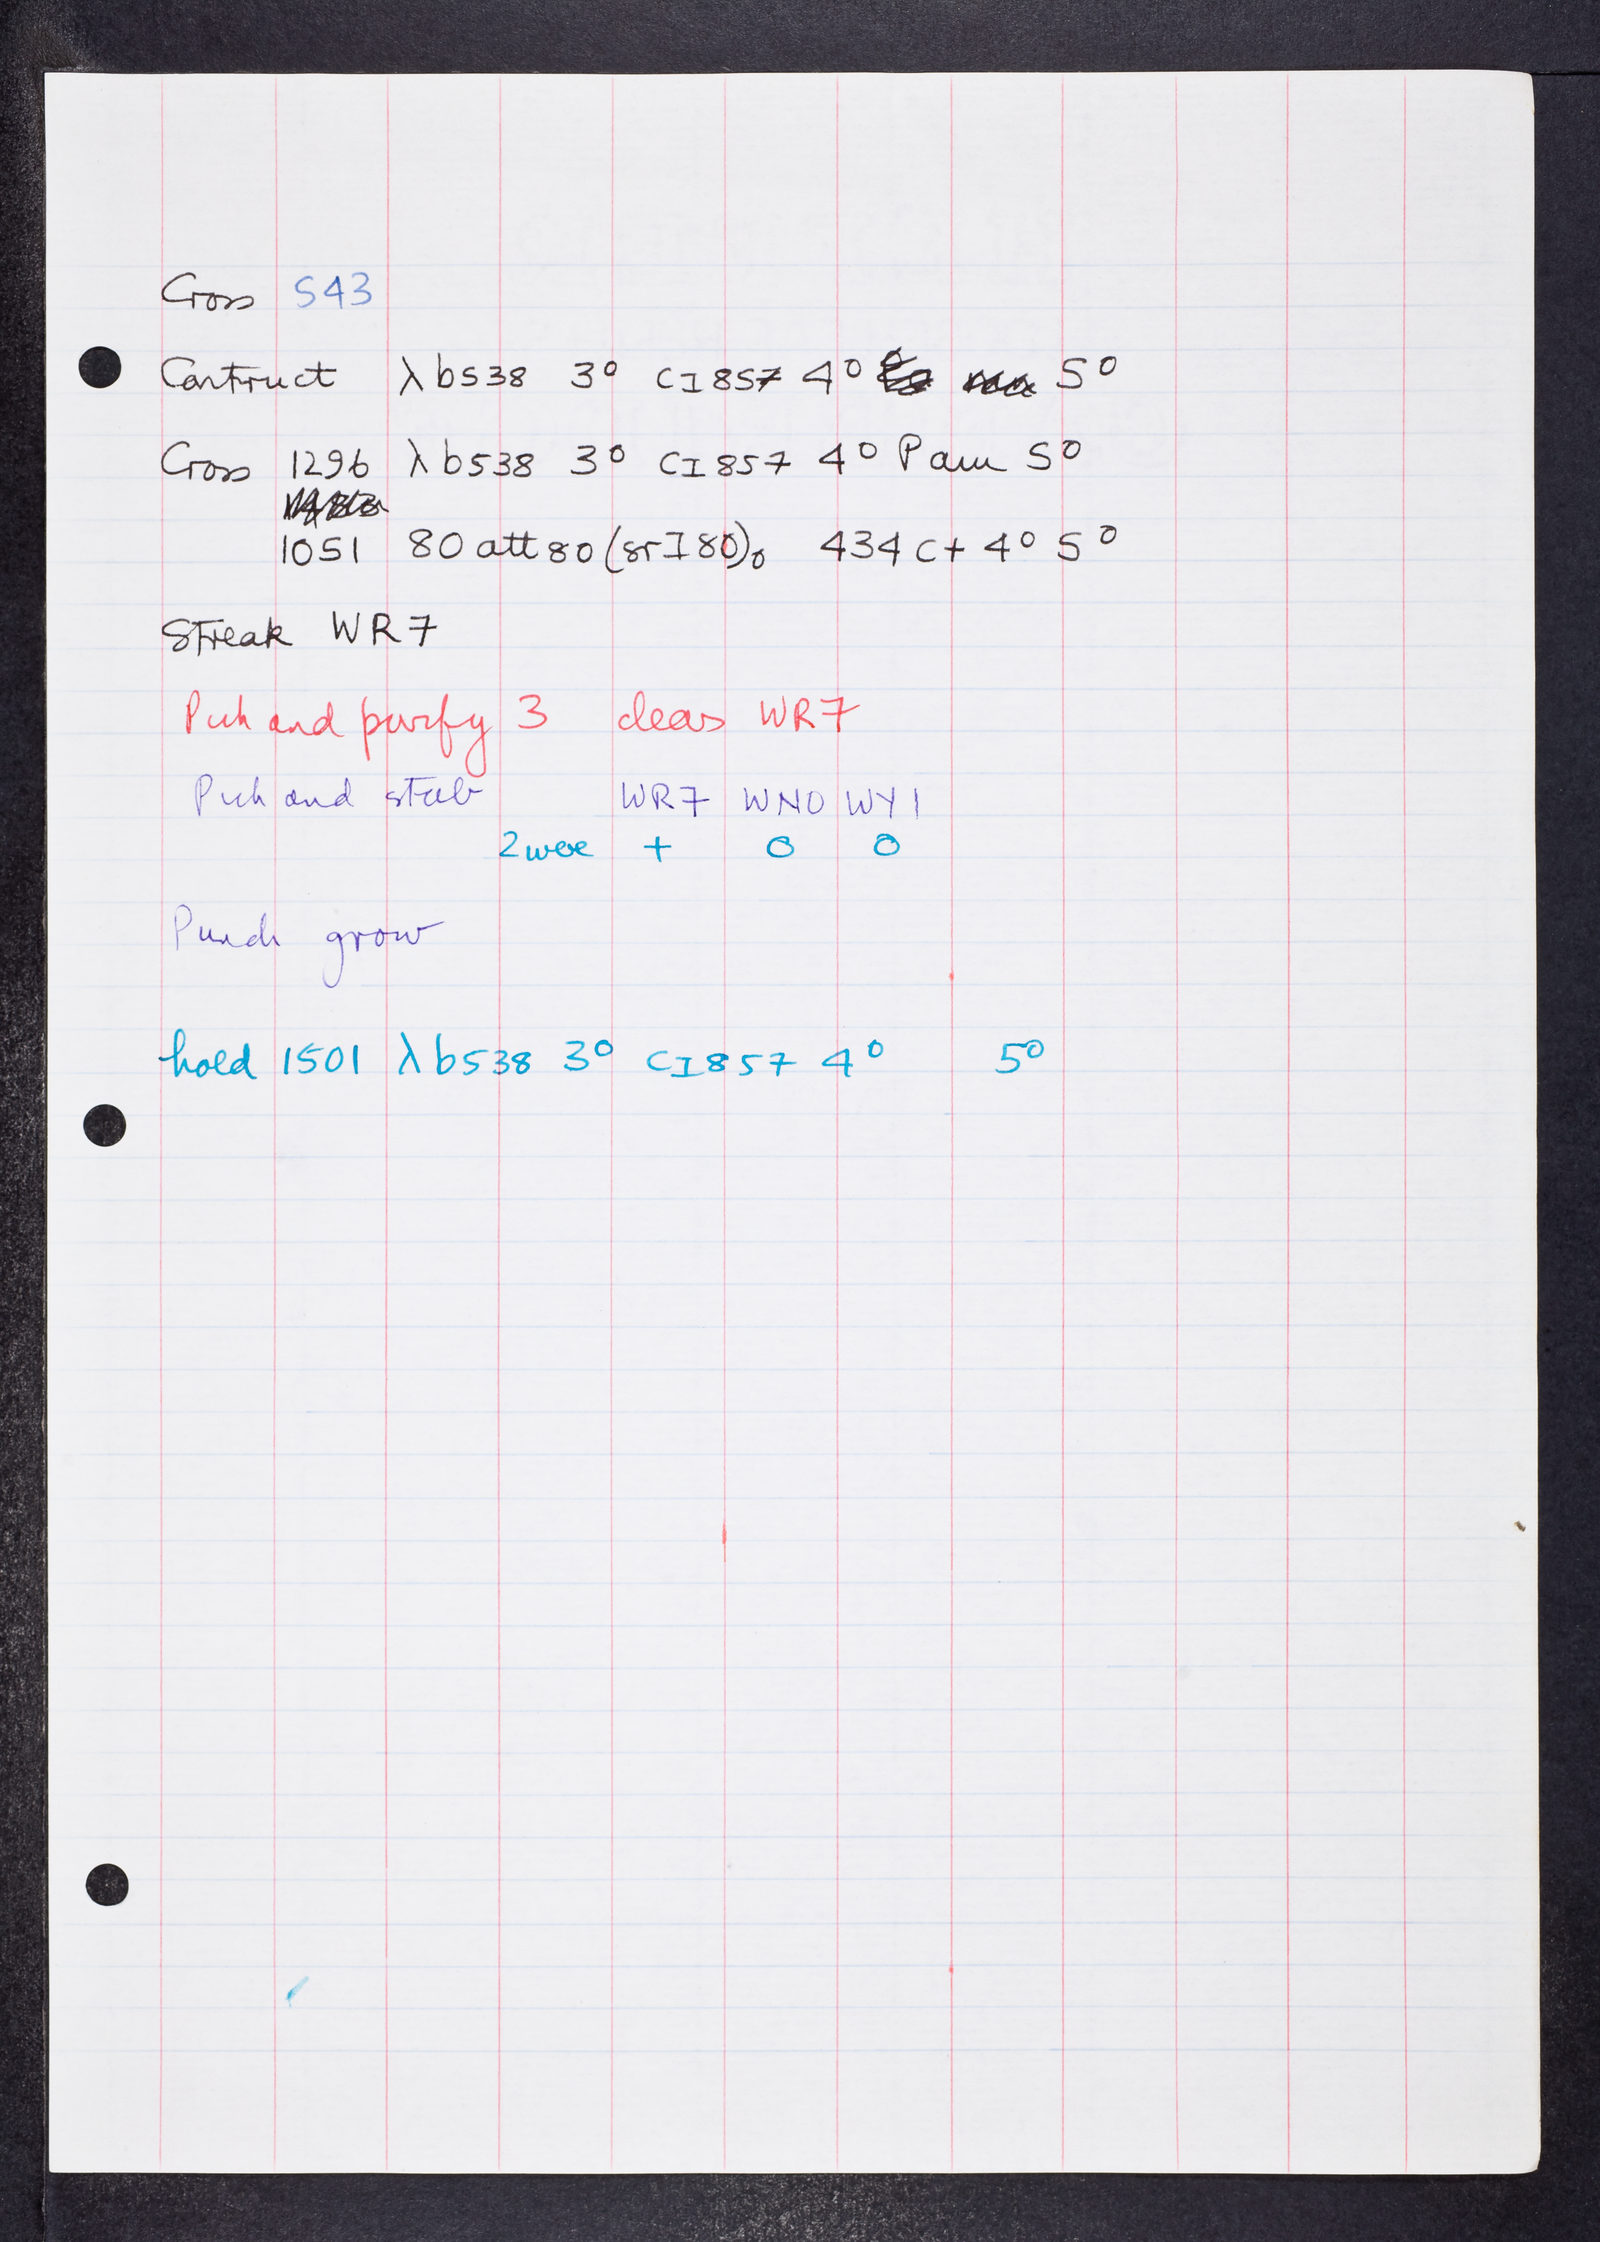 Cross S43
Contruct λ b538 3° cI857 4° 5°
Cross 1296 λ b538 3° cI857 4° Pam 5°
1051 80 att80 (srI80)° 434 c+ 4° 5°
Streak WR7
Pick and purify 3 clears WR7
Pick and stab WR7 WNO WY1
+ 0 0
Punch grow
hold 1501 λ b538 3° cI857 4° 5°